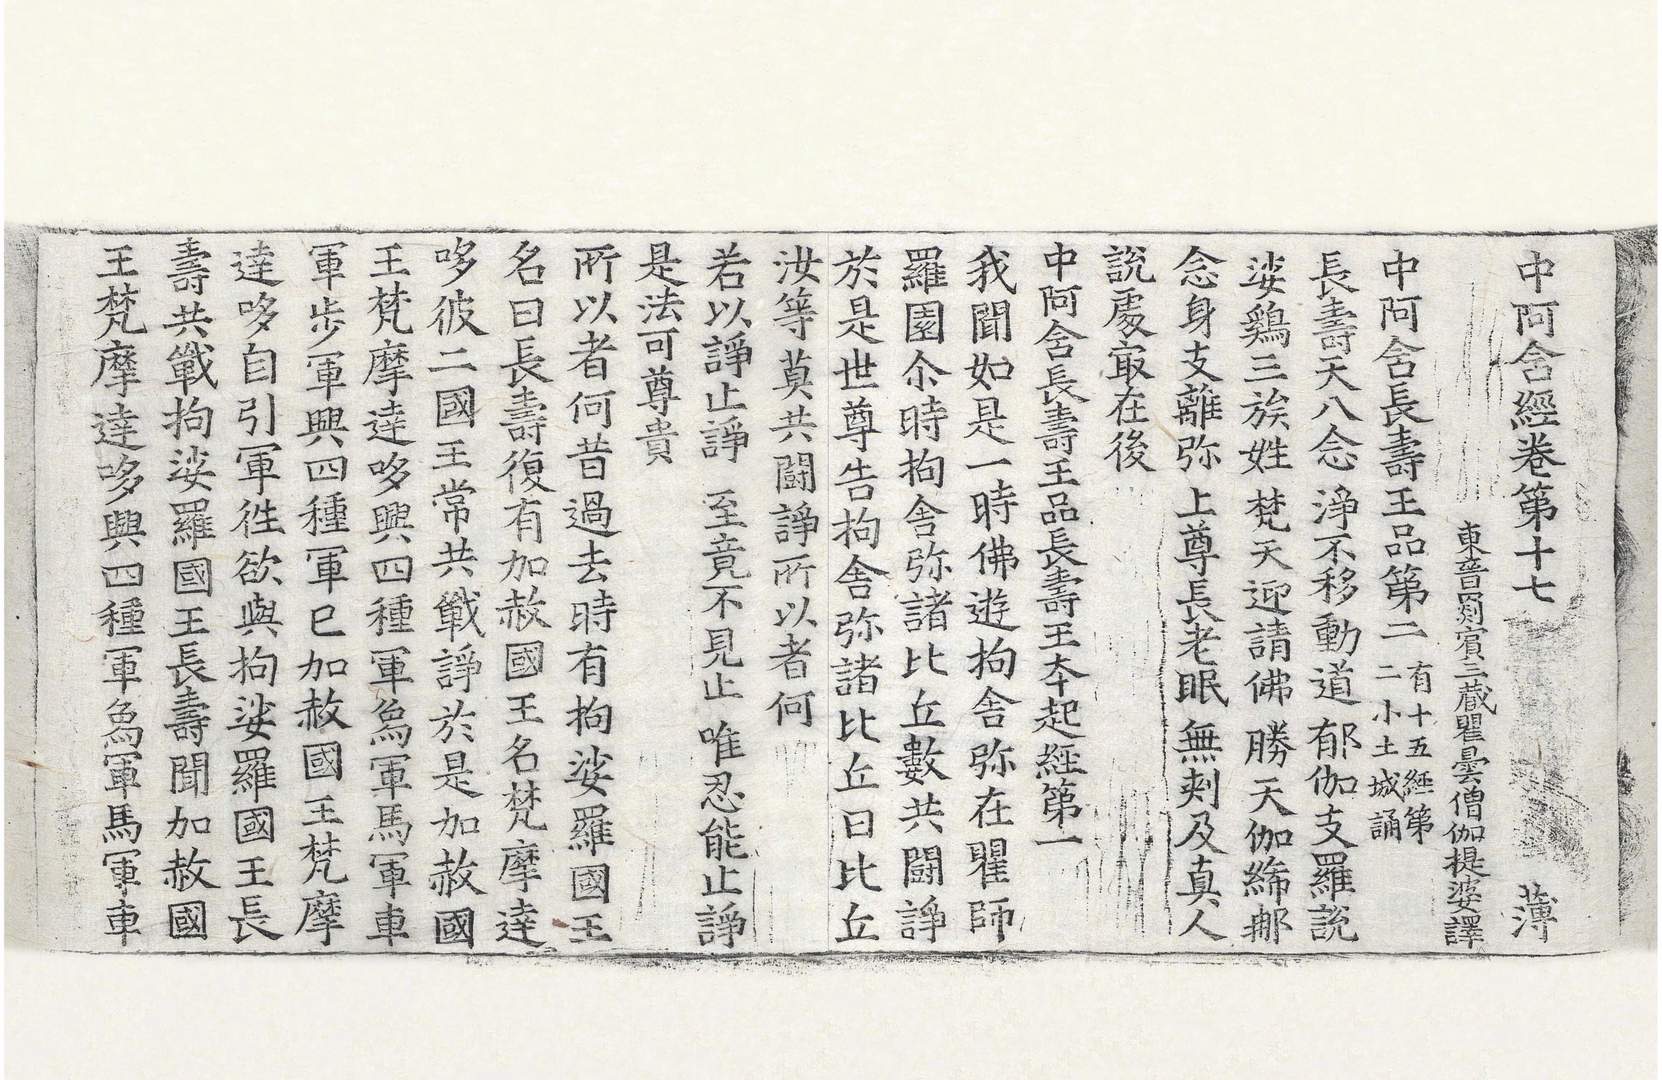 中阿含經卷第十七 薄
東晉罽賓三藏瞿曇僧伽提婆譯
中阿含長壽王品第二 有十五經第二小土城誦
長壽天八念 淨不移動道 郁伽支羅說
娑鷄三族姓 梵天迎請佛 勝天伽絺郍
念身支離弥 上尊長老眠 無刾及真人
說處㝡在後
中阿含長壽王品長壽王夲起經第一
我聞如是一時佛遊拘舍弥在瞿師
羅園尒時拘舍弥諸比丘數共鬪諍
於是世尊告拘舍弥諸比丘曰比丘
汝等莫共鬪諍所以者何
若以諍止諍 至竟不見止 唯忍能止諍
是法可尊貴
所以者何昔過去時有拘娑羅國王
名曰長壽復有加赦國王名梵摩達
哆彼二國王常共戰諍於是加赦國
王梵摩達哆興四種軍象軍馬軍車
軍步軍興四種軍已加赦國王梵摩
達哆自引軍徃欲與拘娑羅國王長
壽共戰拘娑羅國王長壽聞加赦國
王梵摩達哆興四種軍象軍馬軍車